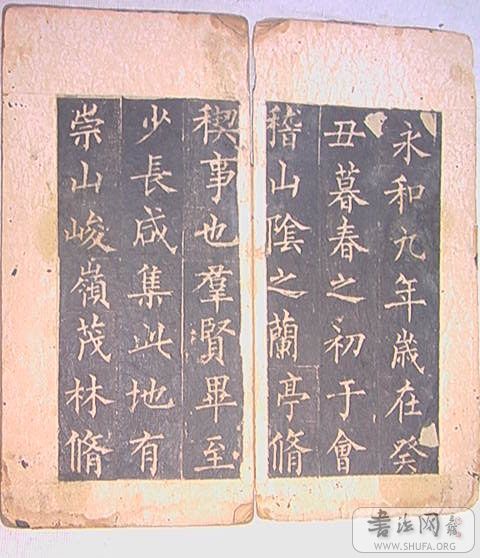 永和九年歲在癸
丑暮春之初于會
稽山陰之蘭亭脩
稧事也羣賢畢至
少長咸集此地有
崇山峻嶺茂林脩
書法网
WWW.SHUFA.ORG